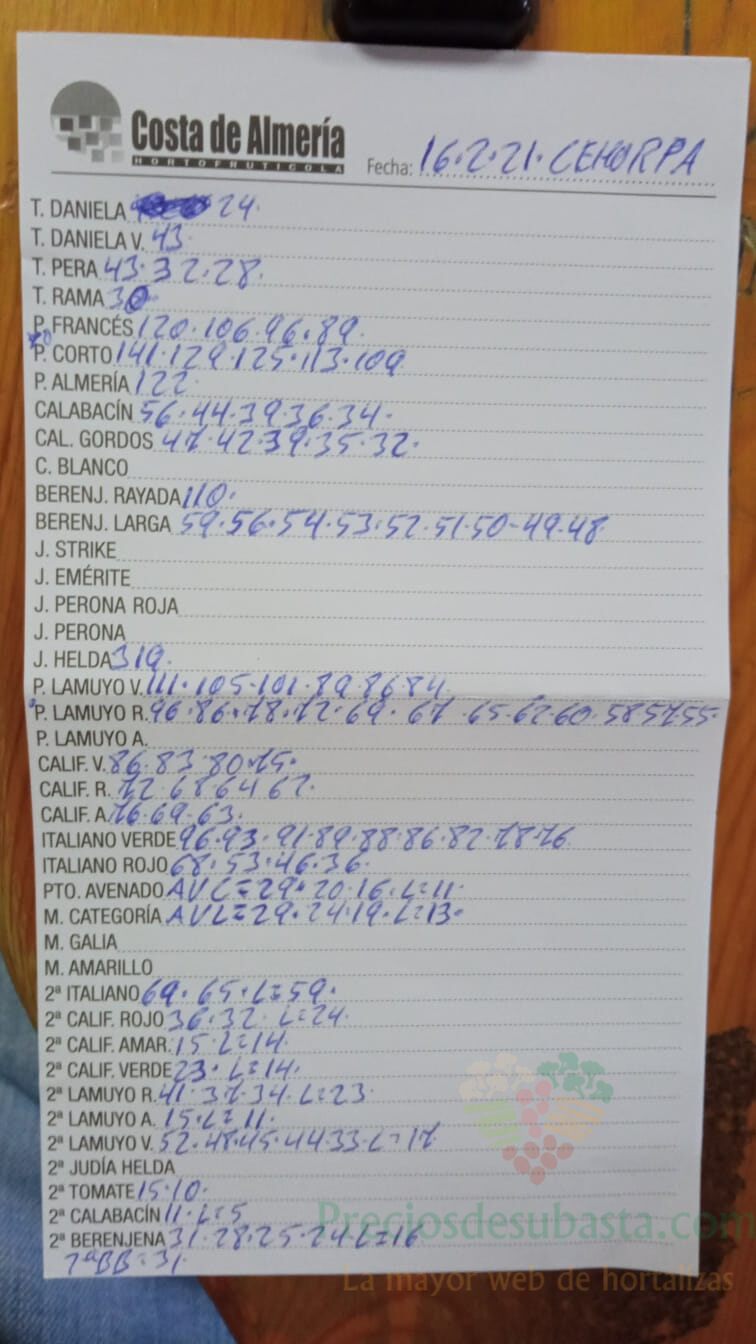 Costa de Almería
HORTOFRUTICOLA
Fecha: 16.2.21. CEHORPA
T. DANIELA 24.
T. DANIELA V. 43
T. PERA 43.32.28.
T. RAMA 30
P. FRANCÉS 120.106.96.89.
P. CORTO 141.129.125.113.109
P. ALMERÍA 122
CALABACÍN 56.44.39.36.34.
CAL. GORDOS 47.42.39.35.32.
C. BLANCO
BERENJ. RAYADA 110.
BERENJ. LARGA 59.56.54.53.52.51.50-49.48
J. STRIKE
J. EMÉRITE
J. PERONA ROJA
J. PERONA
J. HELDA 319.
P. LAMUYO V. 111.105.101.89.86.84
P. LAMUYO R. 96.86.78.72.69.67 65.62.60.58.57.55.
P. LAMUYO A.
CALIF. V. 86.83.80.75.
CALIF. R. 72.68 64 62.
CALIF. A. 76.69.63.
ITALIANO VERDE 96.93.91.89.88.86.82.78.76
ITALIANO ROJO 68.53.46.36.
PTO. AVENADO AVC=29.20.16.L=11.
M. CATEGORÍA AVL=29.24.19.L=13.
M. GALIA
M. AMARILLO
2ª ITALIANO 69.65.L=59.
2ª CALIF. ROJO 36.32 L=24.
2ª CALIF. AMAR. 15.L=14.
2ª CALIF. VERDE 23.L=14.
2ª LAMUYO R. 41.37.34.L=23.
2ª LAMUYO A. 15.L=11.
2ª LAMUYO V. 52.48.45.44 33.L=17
2ª JUDÍA HELDA
2ª TOMATE 15.10.
2ª CALABACÍN 11.L=5
2ª BERENJENA 31.28.25.24.L=16
Preciosdesubasta.com
La mayor web de hortalizas